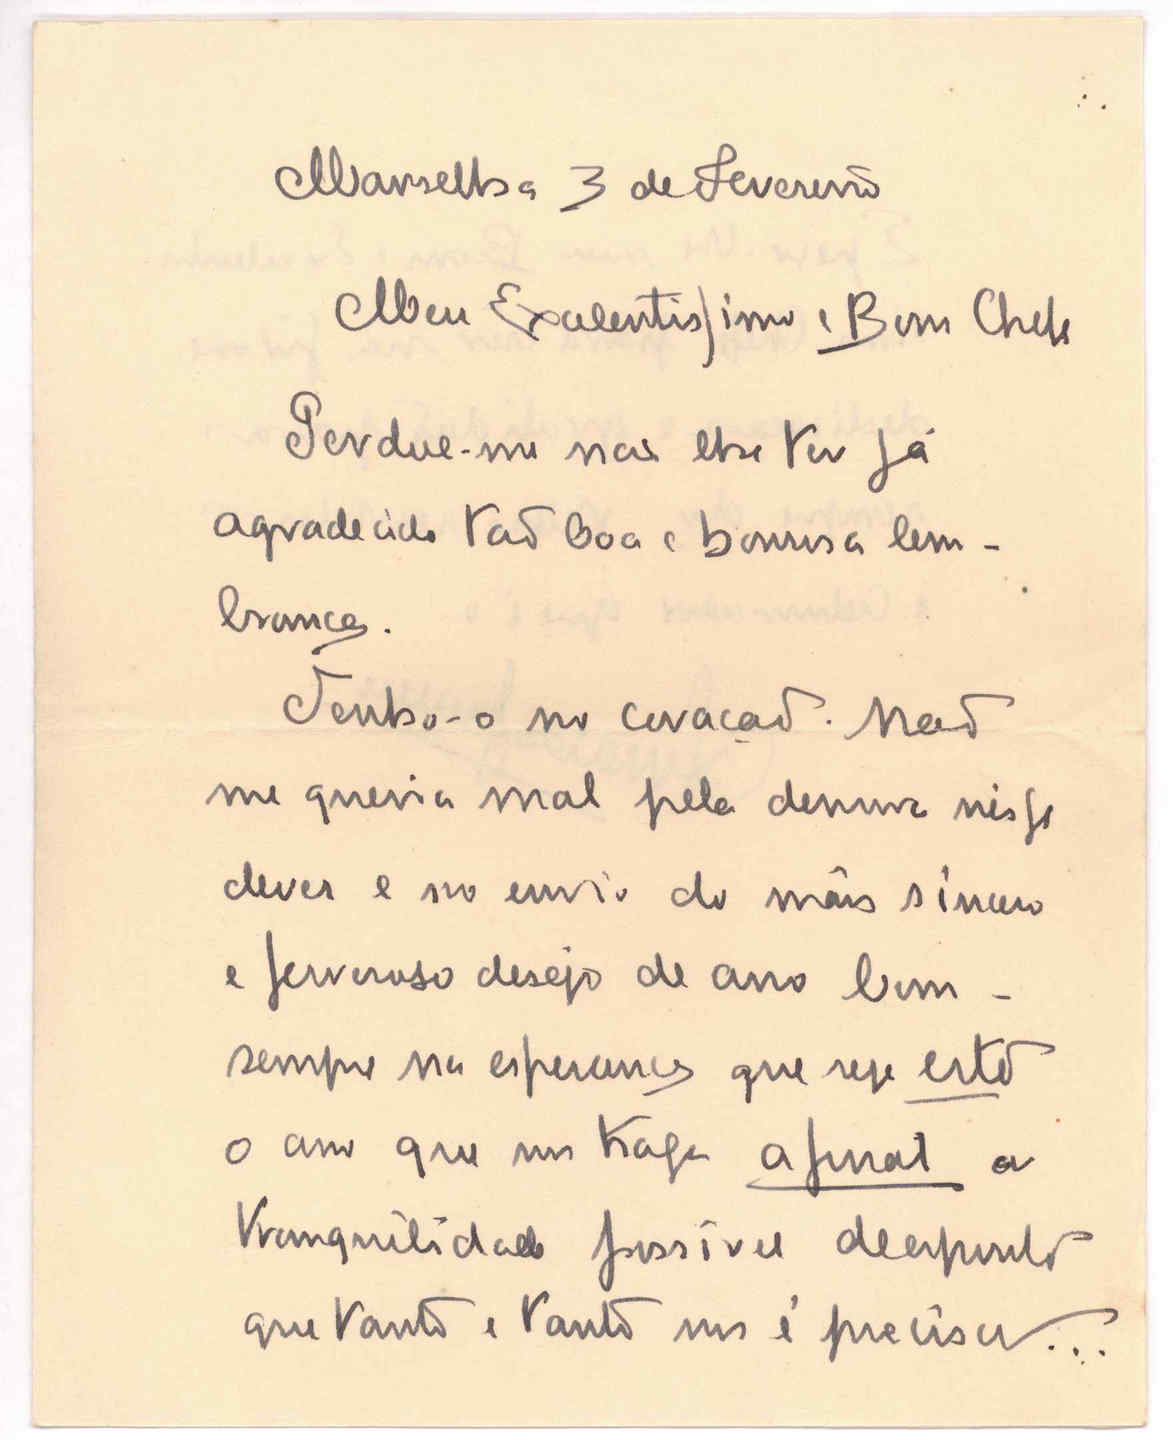 Marselha 3 de Fevereiro
Meu Excelentissimo e Bom Chefe
Perdoe-me não lhe ter já
agradecido tão boa e honrosa lem-
brança.
Tenho-o no coração. Não
me queira mal pela demora nisso
dever e no envio do mais sincero
e fervoroso desejo de ano bom -
sempre na esperança que seja este
o ano que nos traga afinal a
tranquilidade possivel de espirito
que tanto e tanto nos é precisa...